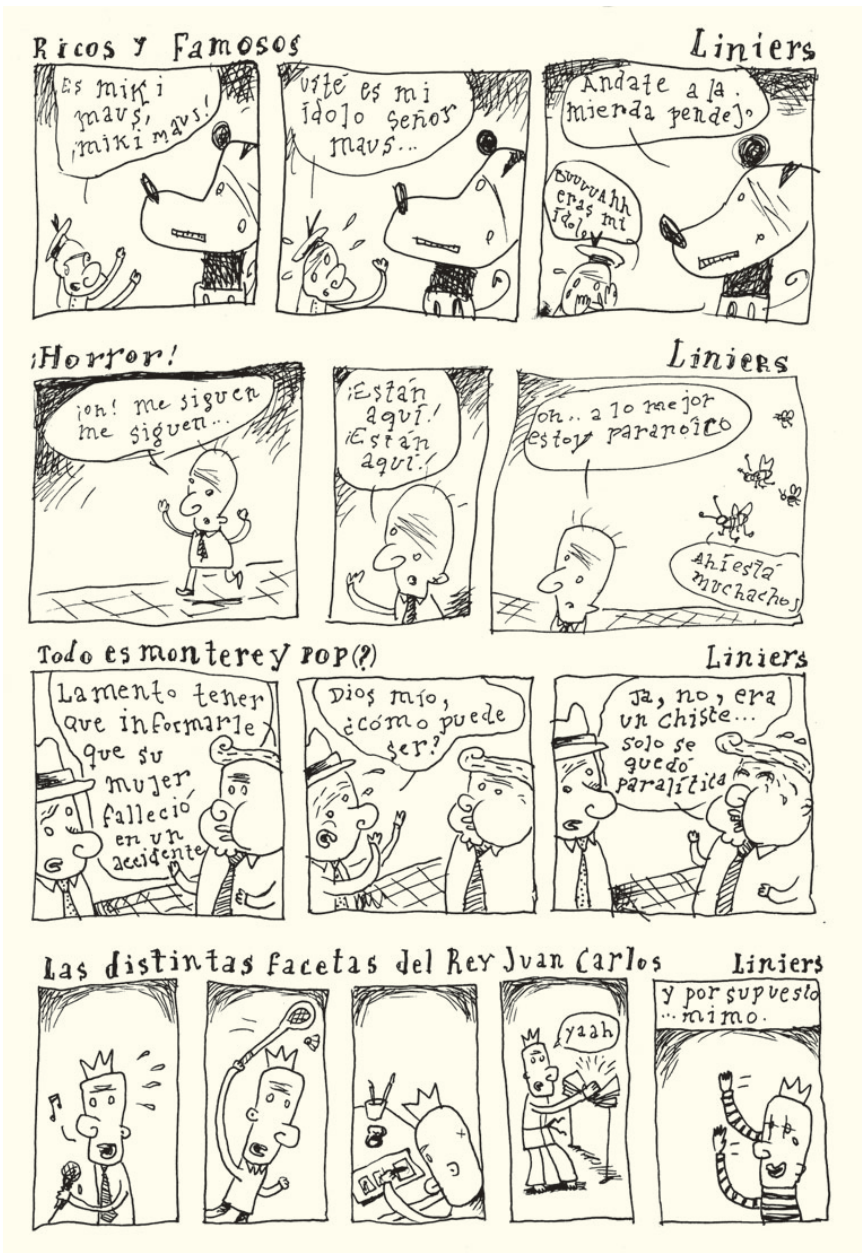 Ricos y Famosos
Liniers
Es miki
maus,
¡miki maus!
Usté es mi
ídolo señor
maus...
Andate a la
mierda pendejo
Buuuuahh
eras mi
ídolo
¡Horror!
Liniers
¡oh! me siguen
me siguen...
¡Están
aquí!
¡Están
aquí!
oh.. a lo mejor
estoy paranoico
Ahí está
muchachos
Todo es monterey POP(?)
Liniers
Lamento tener
que informarle
que su
mujer
falleció
en un
accidente
Dios mío,
¿cómo puede
ser?
Ja, no, era
un chiste...
solo se
quedó
paralítica
Las distintas facetas del Rey Juan Carlos
Liniers
yaah
y por supuesto
...mimo.